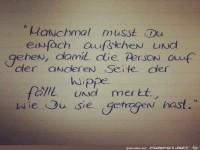 "Manchmal musst Du
einfach aufstehen und
gehen, damit die Person auf
der anderen Seite der
Wippe
fällt und merkt,
wie Du sie getragen hast."